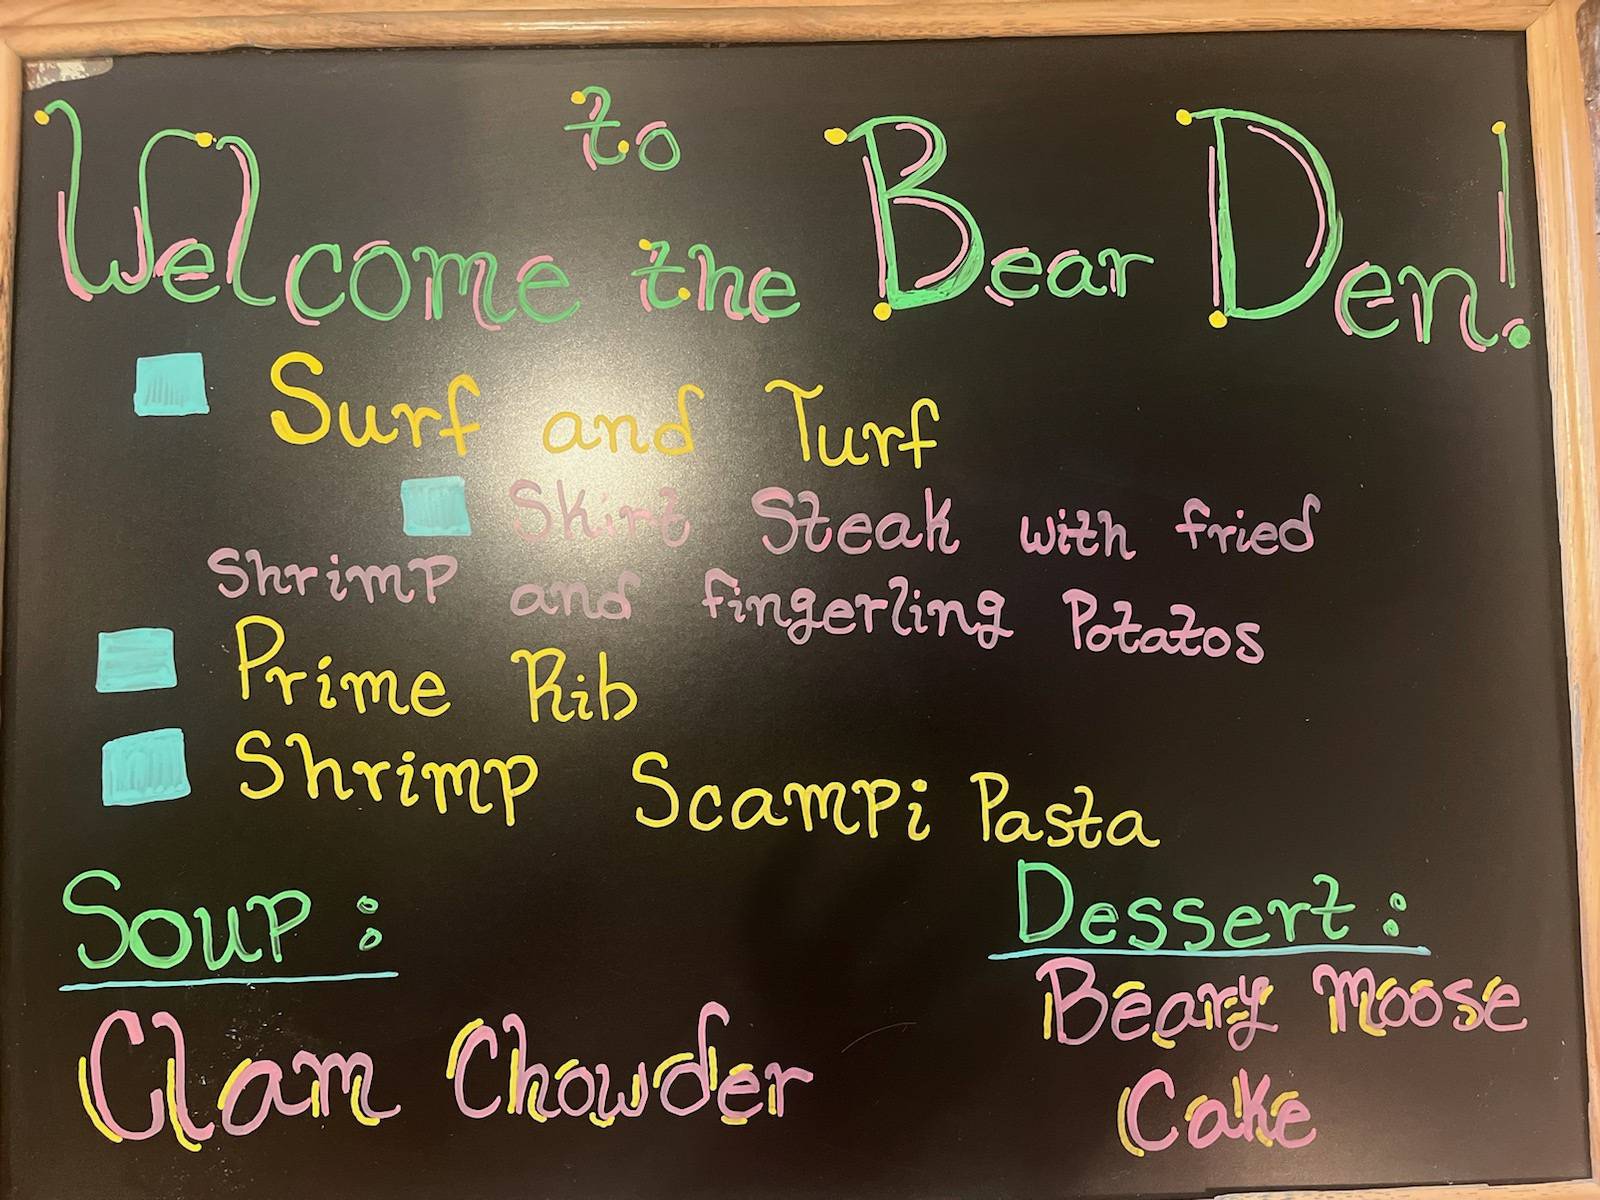 Welcome to the Bear Den!
Surf and Turf
Skirt Steak with fried
Shrimp and fingerling Potatos
Prime Rib
Shrimp Scampi Pasta
Soup:
Clam Chowder
Dessert:
Beary Moose
Cake